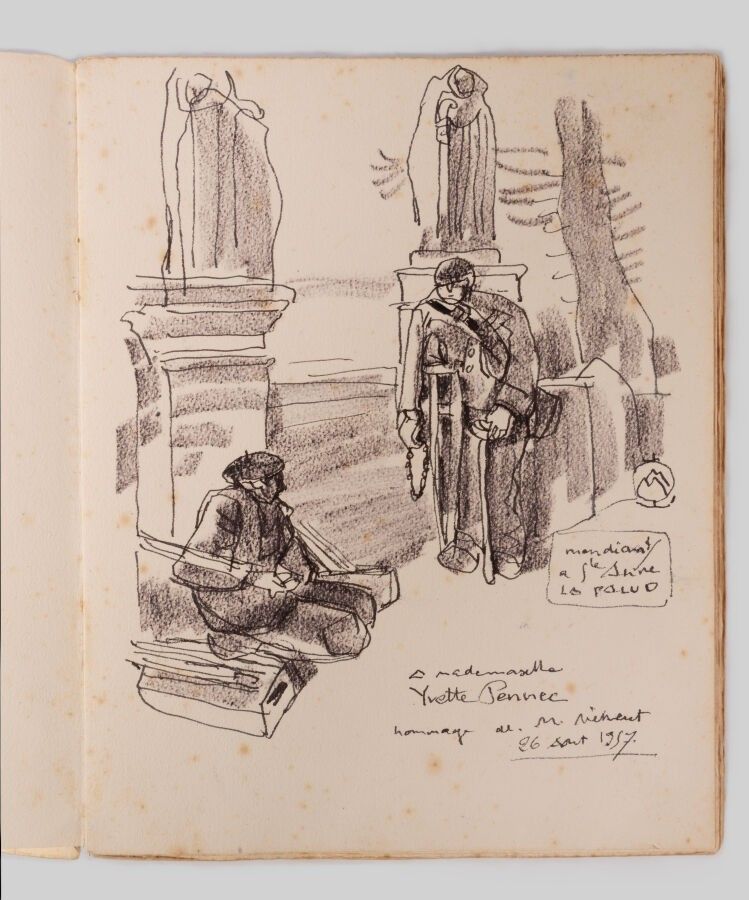 mendiants
a Ste Anne
LA PALUD
A mademoiselle
Yvette Pennec
hommage de. M. Méheut
26 Aout 1957.